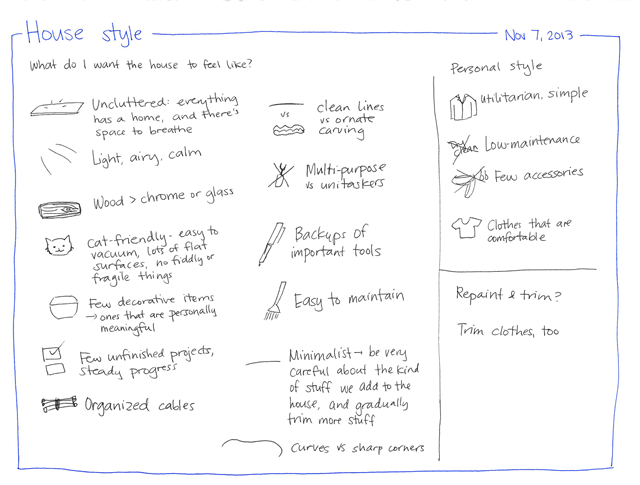 House style
Nov 7, 2013
What do I want the house to feel like?
Uncluttered: everything
has a home, and there's
space to breathe
Light, airy, calm
Wood > chrome or glass
Cat-friendly - easy to
vacuum, lots of flat
surfaces, no fiddly or
fragile things
Few decorative items
→ ones that are personally
meaningful
Few unfinished projects,
steady progress
Organized cables
clean lines
vs
vs ornate
carving
Multi-purpose
vs unitaskers
Backups of
important tools
Easy to maintain
Minimalist → be very
careful about the kind
of stuff we add to the
house, and gradually
trim more stuff
Curves vs sharp corners
Personal style
utilitarian, simple
Low-maintenance
Few accessories
Clothes that are
comfortable
Repaint & trim?
Trim clothes, too